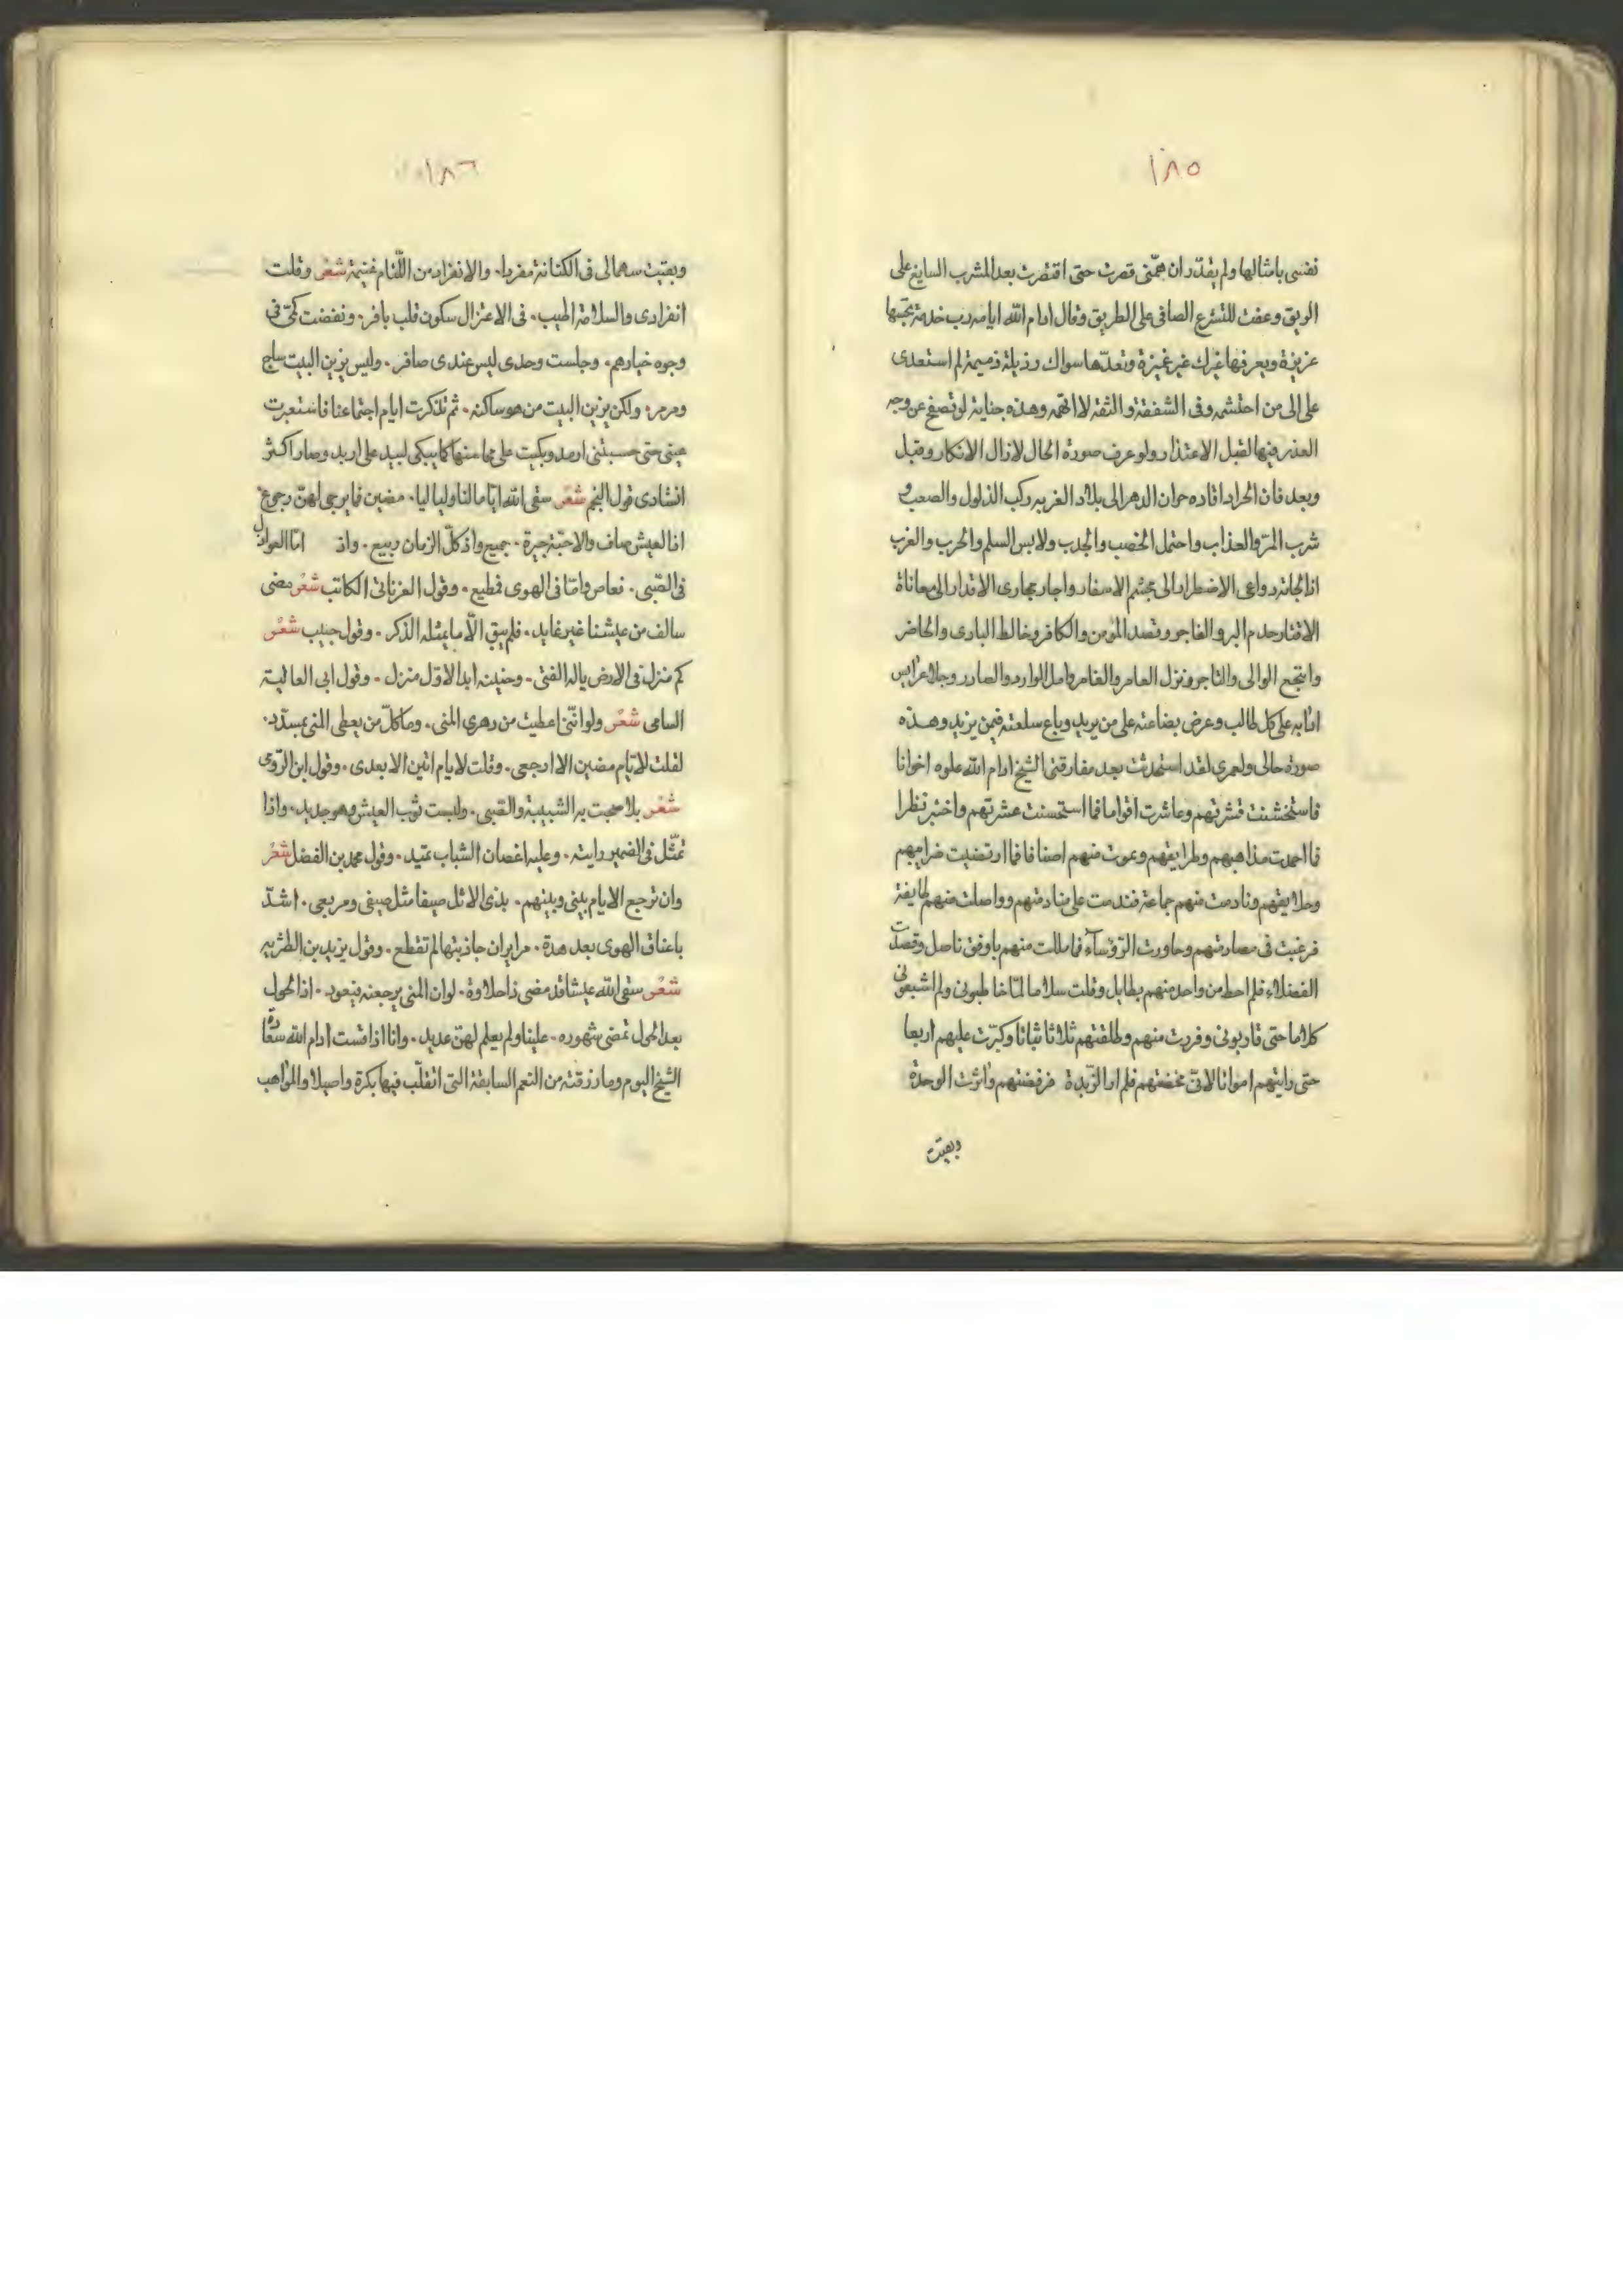 ١٨٥
نفسى بامثالها ولم يقدّر ان همّتى قصرت حتى اقتصرت بعد المشرب السايغ على
الريق وعفت للتشرع الصافى على الطريق وقال ادام الله ايامه رب خدمة تجنبها
عزيزة ويعرفها غيرك غير غريزة وتعدّها سواك رذيلة ذميمة لم استعدى
على الى من احتشمه وفى الشفقة والثقة لا اتهمه وهذه جناية لو تصفح عن وجه
العذر فيها لقبل الاعتذار ولو عرف صورة الحال لازال الانكار وقبل
وبعد فان الحر اذا قاده حوان الدهر الى بلاد الغربه ركب الذلول والصعب و
شرب المرّ والعذاب واحتمل الخصب والجدب ولابس السلم والحرب والغرب
اذا لجاته دواعى الاضطرار الى تجشم الاسفار واجار مجارى الاقدار الى معاناة
الاقتار خدم البر والفاجر وقصد المؤمن والكافر وخالط البادى والحاضر
وانتجع الوالى والتاجر ونزل العامر والغامر وامل الوارد والصادر وجلا عرايس
ادابه على كل طالب وعرض بضاعته على من يريد وباع سلعته فيمن يزيد وهذه
صورة حالى ولعمرى لقد استحدثت بعد مفارقتى الشيخ ادام الله علوه اخوانا
فاستخشنت قشرتهم وعاشرت اقواما فما استحسنت عشرتهم واختبر نظرا
فما احمدت مذاهبهم وطرايقهم وعموت منهم اصنافا فما ارتضيت ضرايبهم
وخلايقهم ونادمت منهم جماعة فندمت على منادمتهم وواصلت منهم طايفة
فرغبت فى مصارمتهم وحاورت الرّؤسآء فما مللت منهم باوفق ناصل وقصدت
الفضلاء فلم احظ من واحد منهم بطايل وقلت سلاما لمّا خاطبونى ولم اشبعونى
كلاما حتى قاربونى وفررت منهم وطلقتهم ثلاثا بتاتا وكبّرت عليهم اربعا
حتى رايتهم امواتا لانى مخضتهم فلم ار الزّبدة فرفضتهم وآثرت الوحدة
وبقيت
١٨٦
وبقيت سهما لى فى الكنانة مفردا. والانفراد من اللّئام غنيمة شعر وقلت
انفرادى والسلامة اطيب. فى الاعتزال سكون قلب بافر. ونفضت كمّى فى
وجوه خيارهم. وجلست وحدى ليس عندى صافر. وليس يزين البيت ساج
ومرمر. ولكن يزين البيت من هو ساكنه. ثم تذكرت ايام اجتماعنا فاستعبرت
عينى حتى حسبتنى ارمد وبكيت على ما منها كما يبكى لبيد على اربد وصار اكثر
انشادى قول النجم شعر سقى الله اياما لنا ولياليا. مضين فما يرجى لهنّ رجوع
اذا العيش صاف والاحبّة جيرة. جميع واذ كلّ الزمان ربيع. واذ امّا العواذل
فى الصّبى. فعاص وامّا فى الهوى فمطيع. وقول العزناتى الكاتب شعر مضى
سالف من عيشنا غير عايد. فلم يبق الّا ما يمثله الذكر. وقول حبيب شعر
كم منزل فى الارض يالفه الفتى. وحنينه ابدا لاوّل منزل. وقول ابى العالية
السامى شعر ولو انّنى اعطيت من دهرى المنى. وما كلّ من يعطى المنى بمسدّد.
لقلت لايّام مضين الا ارجعى. وقلت لايام اتين الا ابعدى. وقول ابن الرّومى
شعر بلا صحبت به الشبيبة والصّبى. ولبست ثوب العيش وهو جديد. واذا
تمثّل فى الضمير رايته. وعليه اغصان الشباب تميد. وقول محمد بن الفضل شعر
وان ترجع الايام بينى وبينهم. بذى الاثل صيفا مثل صيفى ومربعى. اشدّ
باعناق الهوى بعد هدة. مراير ان جاذبتها لم تقطع. وقول يزيد بن الطثريه
شعر سقى الله عيشا قد مضى ذا حلاوة. لو ان المنى يرجعنه فيعود. اذا الحول
بعد الحول تمضى شهوره. علينا ولم يعلم لهنّ عديد. وانا اذا قست ادام الله سعادة
الشيخ اليوم وما رزقته من النعم السابقة التى اتقلّب فيها بكرة واصيلا والمواهب